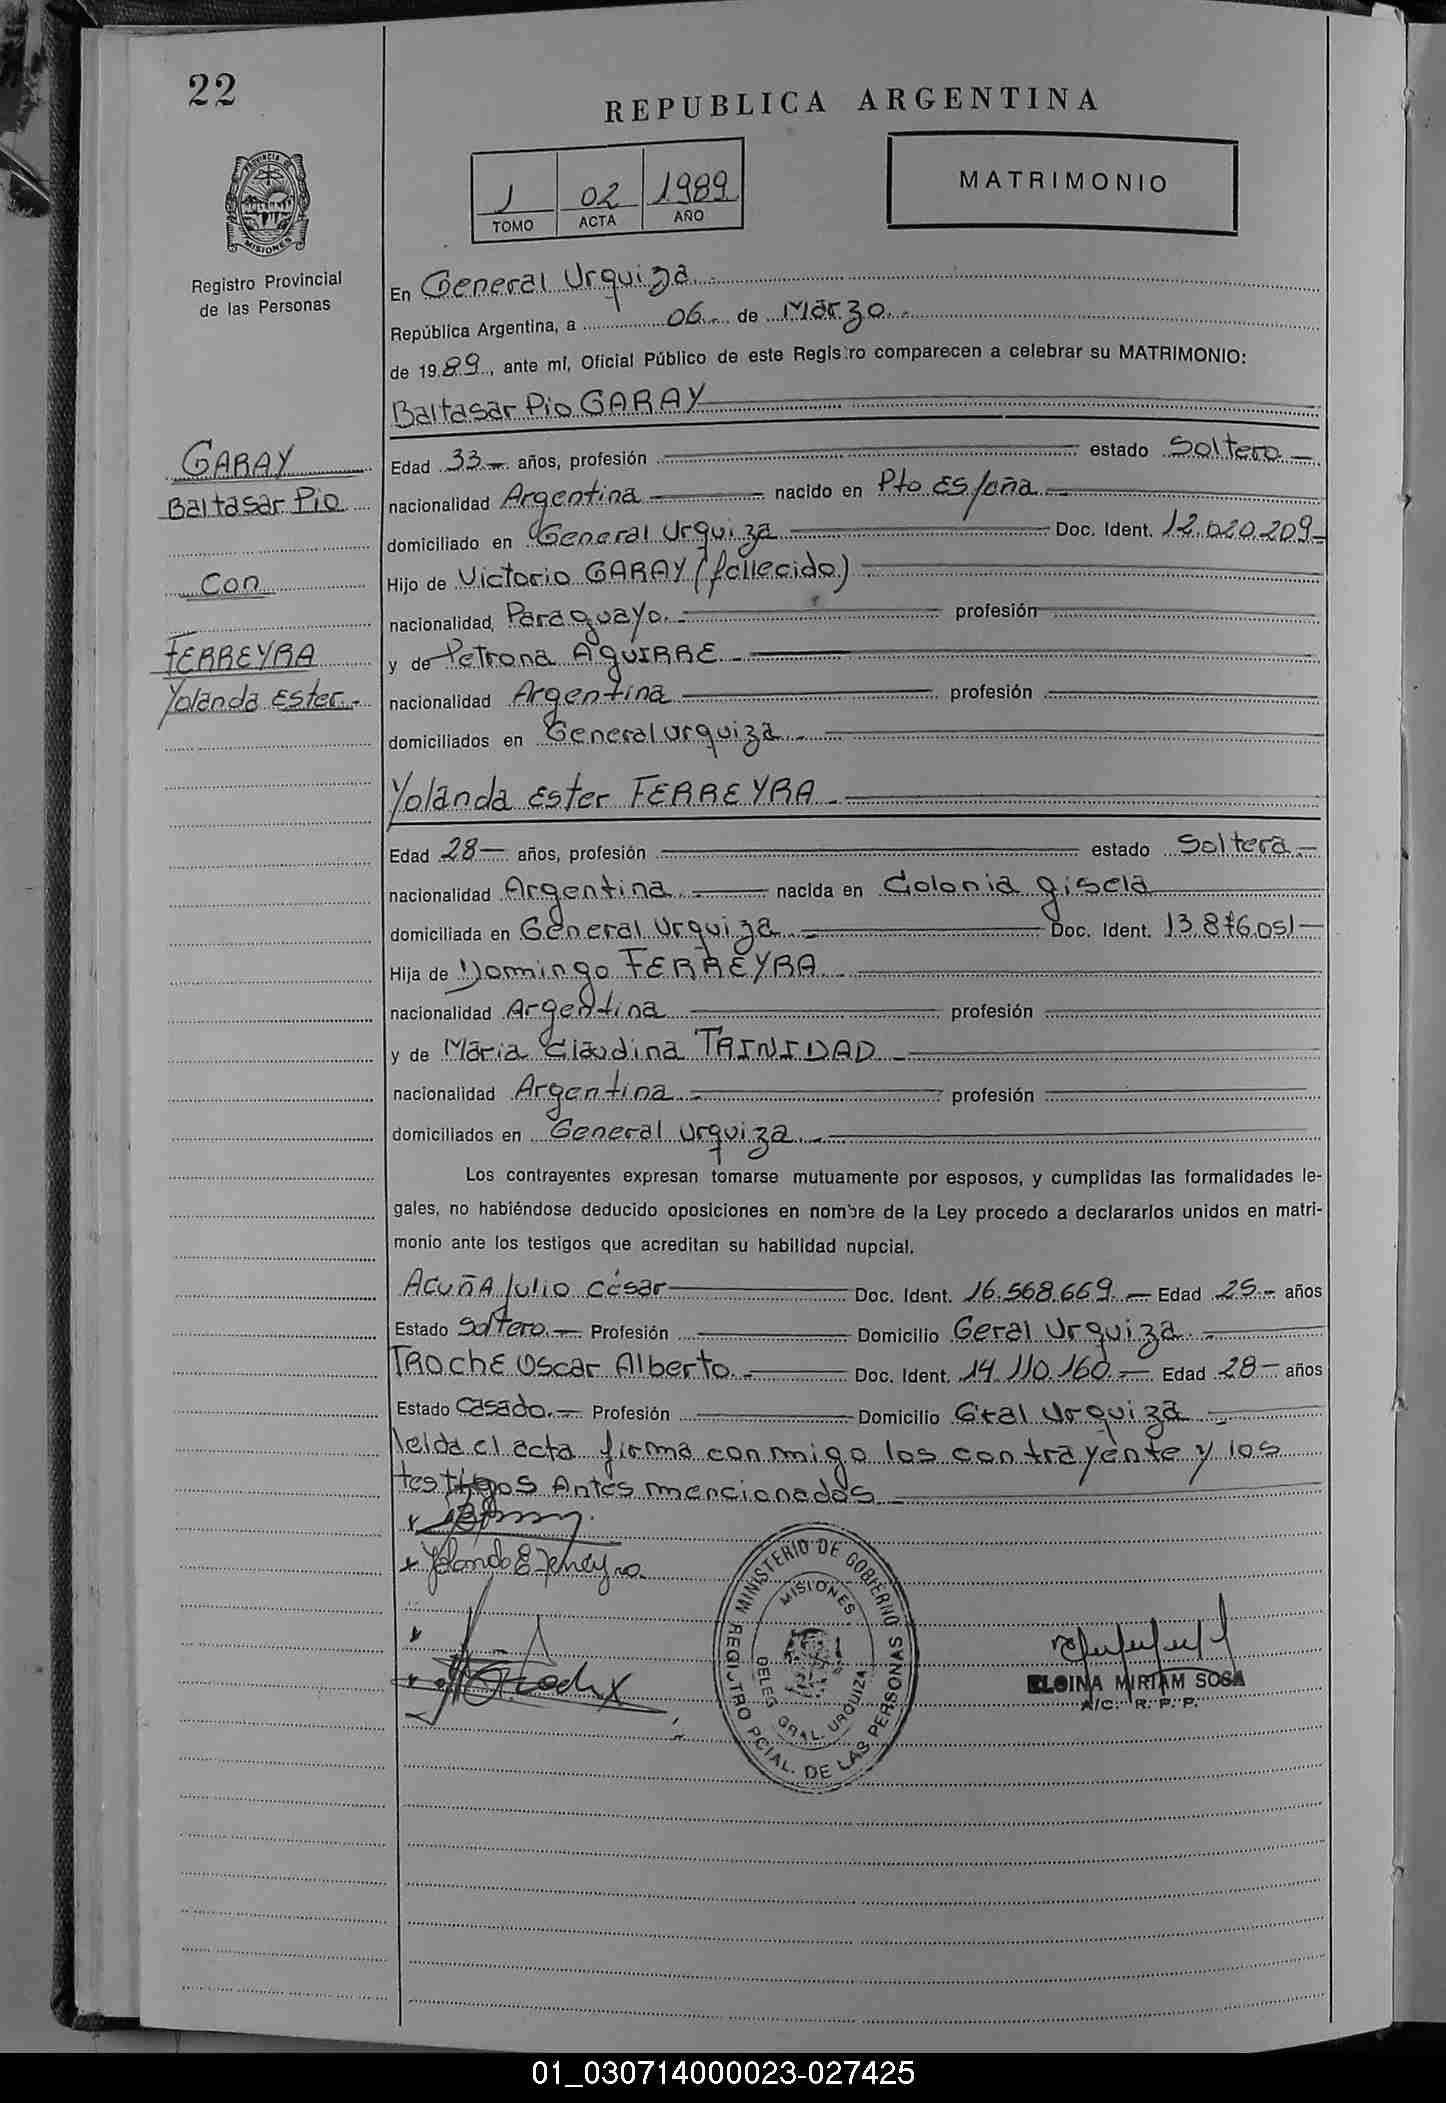 22
REPUBLICA ARGENTINA
PROVINCIA DE
MISIONES
Registro Provincial
de las Personas
1 02 1989
TOMO ACTA AÑO
MATRIMONIO
En General Urquiza
República Argentina, a 06 de Marzo
de 1989, ante mí, Oficial Público de este Registro comparecen a celebrar su MATRIMONIO:
Baltasar Pio GARAY
GARAY
Baltasar Pio
Con
FERREYRA
Yolanda Ester
Edad 33 años, profesión estado Soltero
nacionalidad Argentina nacido en Pto España
domiciliado en General Urquiza Doc. Ident. 12.020.209
Hijo de Victorio GARAY (fallecido)
nacionalidad Paraguayo profesión
y de Petrona AGUIRRE
nacionalidad Argentina profesión
domiciliados en General Urquiza
Yolanda Ester FERREYRA
Edad 28 años, profesión estado Soltera
nacionalidad Argentina nacida en Colonia gisela
domiciliada en General Urquiza Doc. Ident. 13.876.051
Hija de Domingo FERREYRA
nacionalidad Argentina profesión
y de Maria Claudina TRINIDAD
nacionalidad Argentina profesión
domiciliados en General Urquiza
Los contrayentes expresan tomarse mutuamente por esposos, y cumplidas las formalidades le-
gales, no habiéndose deducido oposiciones en nombre de la Ley procedo a declararlos unidos en matri-
monio ante los testigos que acreditan su habilidad nupcial.
ACUÑA Julio César Doc. Ident. 16.568.669 Edad 25 años
Estado Soltero Profesión Domicilio Geral Urquiza
TROCHE Oscar Alberto Doc. Ident. 14.110.160 Edad 28 años
Estado Casado Profesión Domicilio Gral Urquiza
leida el acta firma conmigo los contrayente y los
testigos Antes mencionados
Yolanda E Ferreyra
MINISTERIO DE GOBIERNO
MISIONES
DELEG GRAL. URQUIZA
REGISTRO PCIAL. DE LAS PERSONAS
ELOINA MIRIAM SOSA
A/C. R. P. P.
01_030714000023-027425